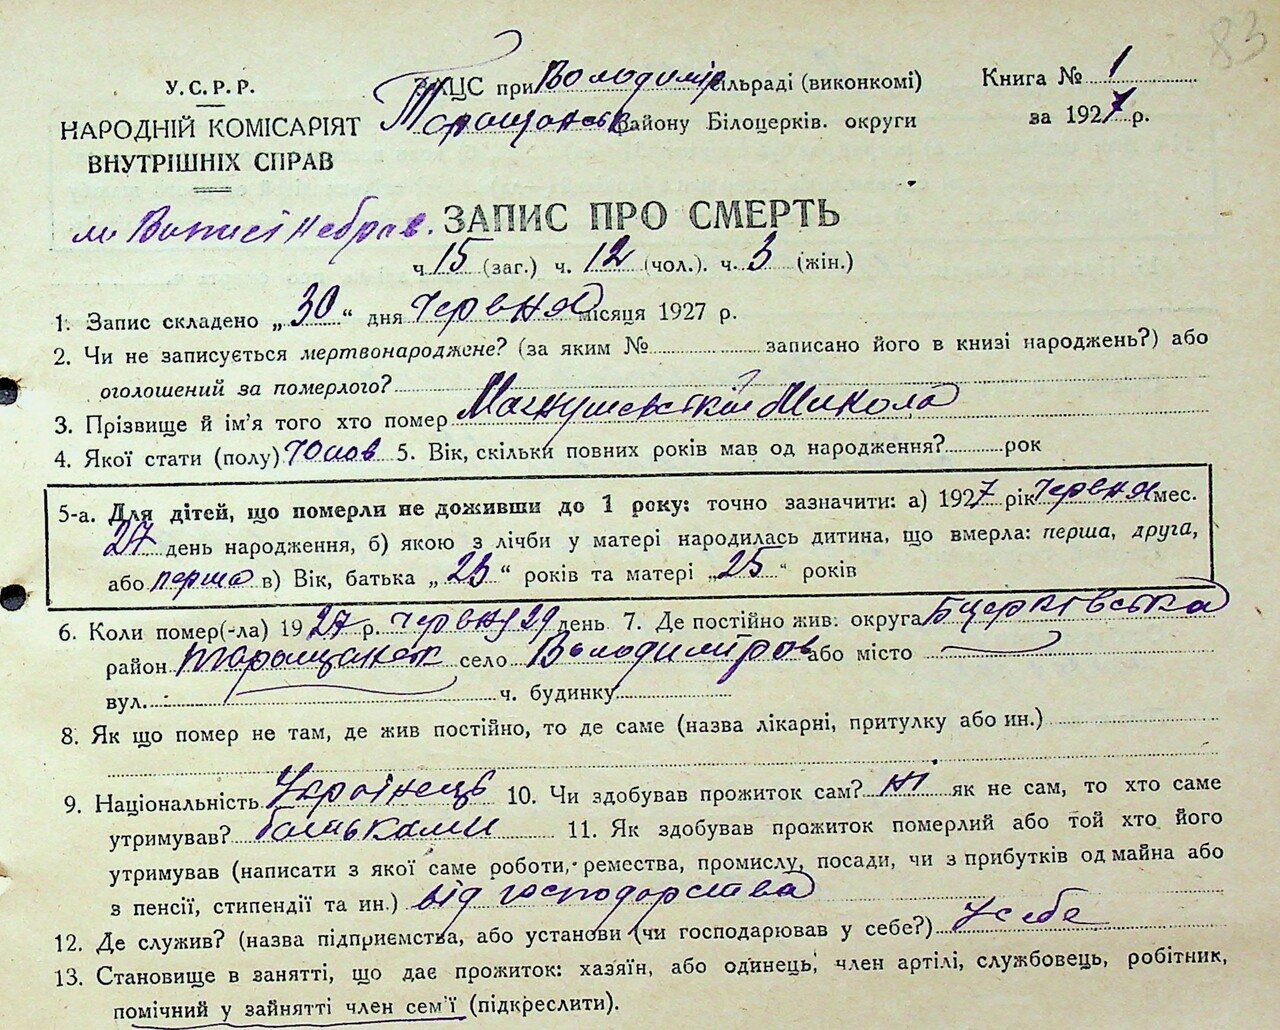 83
У.С.Р.Р.
НАРОДНІЙ КОМІСАРІЯТ
ВНУТРІШНІХ СПРАВ
ЗАЦС при Володимір сільраді (виконкомі)
Таращанськ району Білоцерків. округи
Книга № 1
за 1927 р.
ЗАПИС ПРО СМЕРТЬ
ч 15 (заг.) ч. 12 (чол.). ч. 3 (жін.)
1. Запис складено „30“ дня Червня місяця 1927 р.
2. Чи не записується мертвонароджене? (за яким № записано його в книзі народжень?) або
оголошений за померлого?
3. Прізвище й ім'я того хто помер Магнушевській Микола
4. Якої стати (полу) Чолов 5. Вік, скільки повних років мав од народження? рок
5-а. Для дітей, що померли не доживши до 1 року: точно зазначити: а) 1927 рік Червня мес.
27 день народження, б) якою з лічби у матері народилась дитина, що вмерла: перша, друга,
або перша в) Вік, батька „23“ років та матері „25“ років
6. Коли помер(-ла) 1927 р. червня 29 день 7. Де постійно жив: округа Бцерківська
район Таращанськ село Володиміров або місто
вул. ч. будинку
8. Як що помер не там, де жив постійно, то де саме (назва лікарні, притулку або ин.)
9. Національність Українець 10. Чи здобував прожиток сам? ні як не сам, то хто саме
утримував? батьками 11. Як здобував прожиток померлий або той хто його
утримував (написати з якої саме роботи, ремества, промислу, посади, чи з прибутків од майна або
з пенсії, стипендії та ин.) від господарства
12. Де служив? (назва підприємства, або установи (чи господарював у себе?) У себе
13. Становище в занятті, що дає прожиток: хазяїн, або одинець, член артілі, службовець, робітник,
помічний у зайнятті член сем'ї (підкреслити).